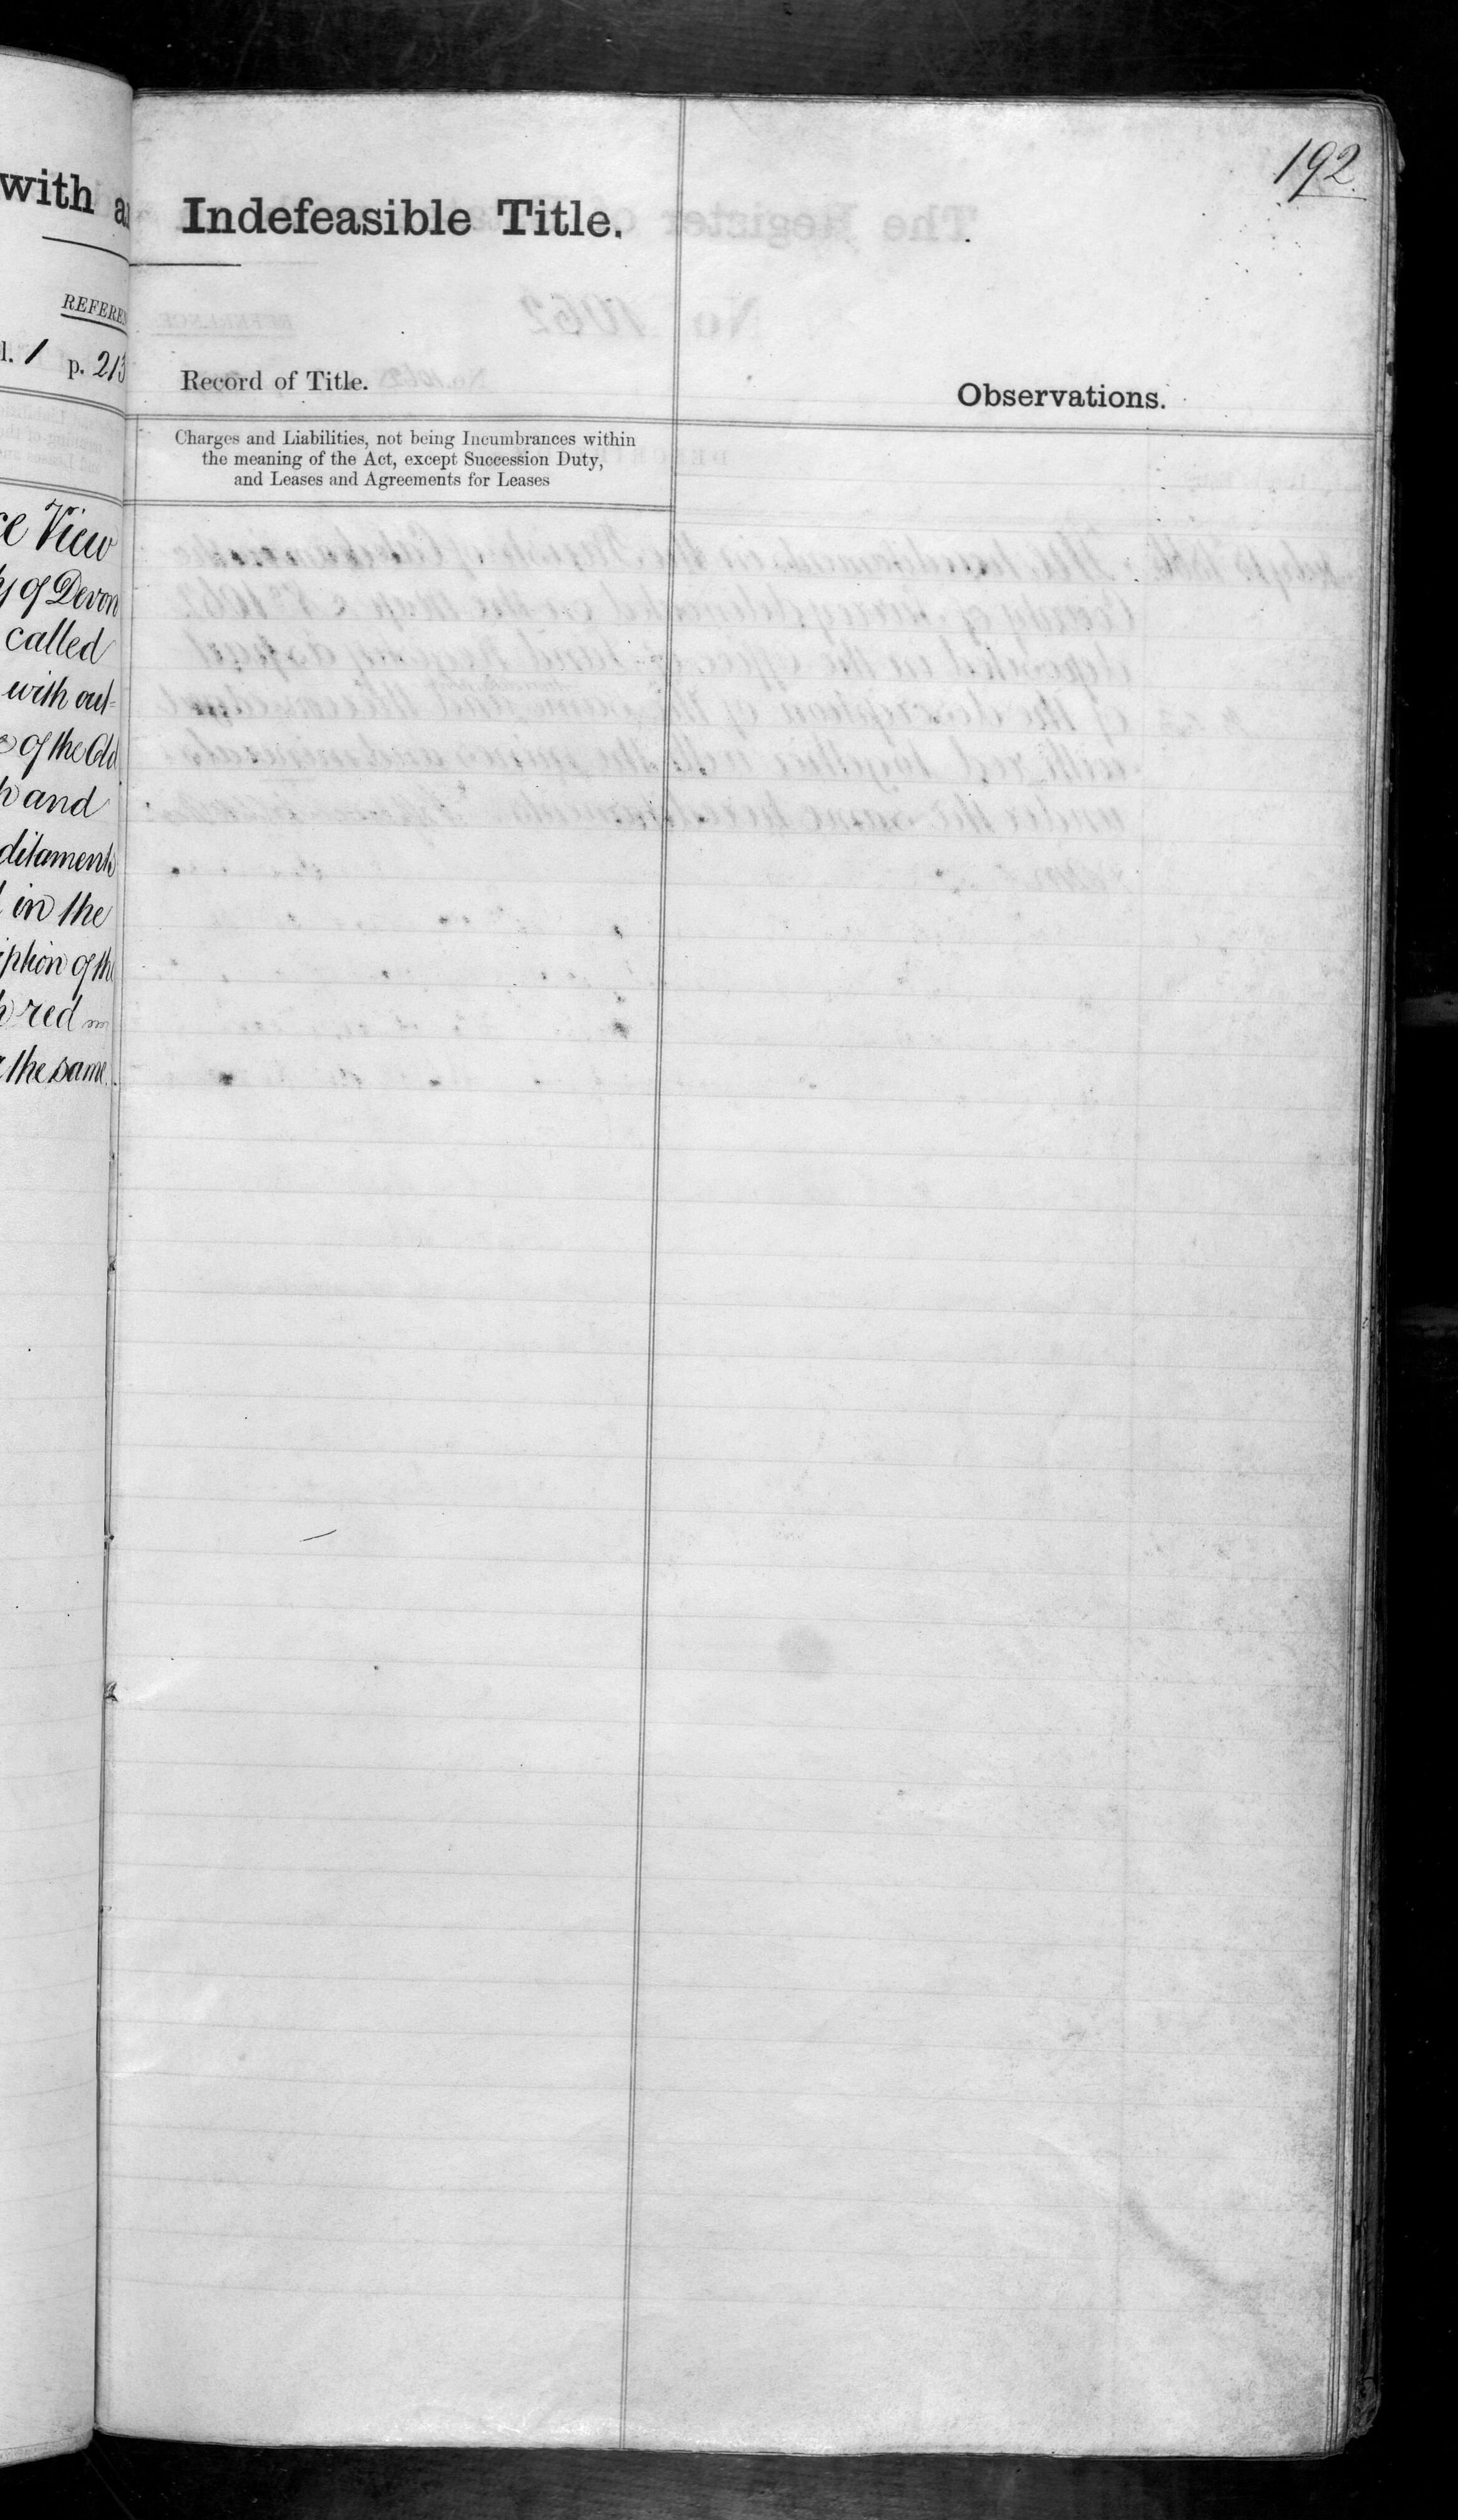 with
REFEREN
l. 1 p. 213
ce View
of Devon
called
with out=
of the Old
and
ditaments
in the
iption of the
red
the same.
192.
Indefeasible Title.
Record of Title.
Observations.
Charges and Liabilities, not being Incumbrances within
the meaning of the Act, except Succession Duty,
and Leases and Agreements for Leases